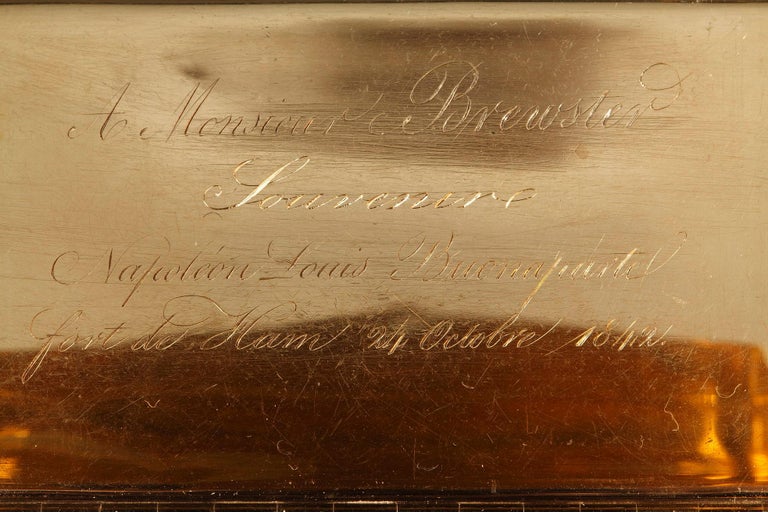 A Monsieur Brewster
Souvenire
Napoléon Louis Buonaparte
fort de Ham 24 Octobre 1842.